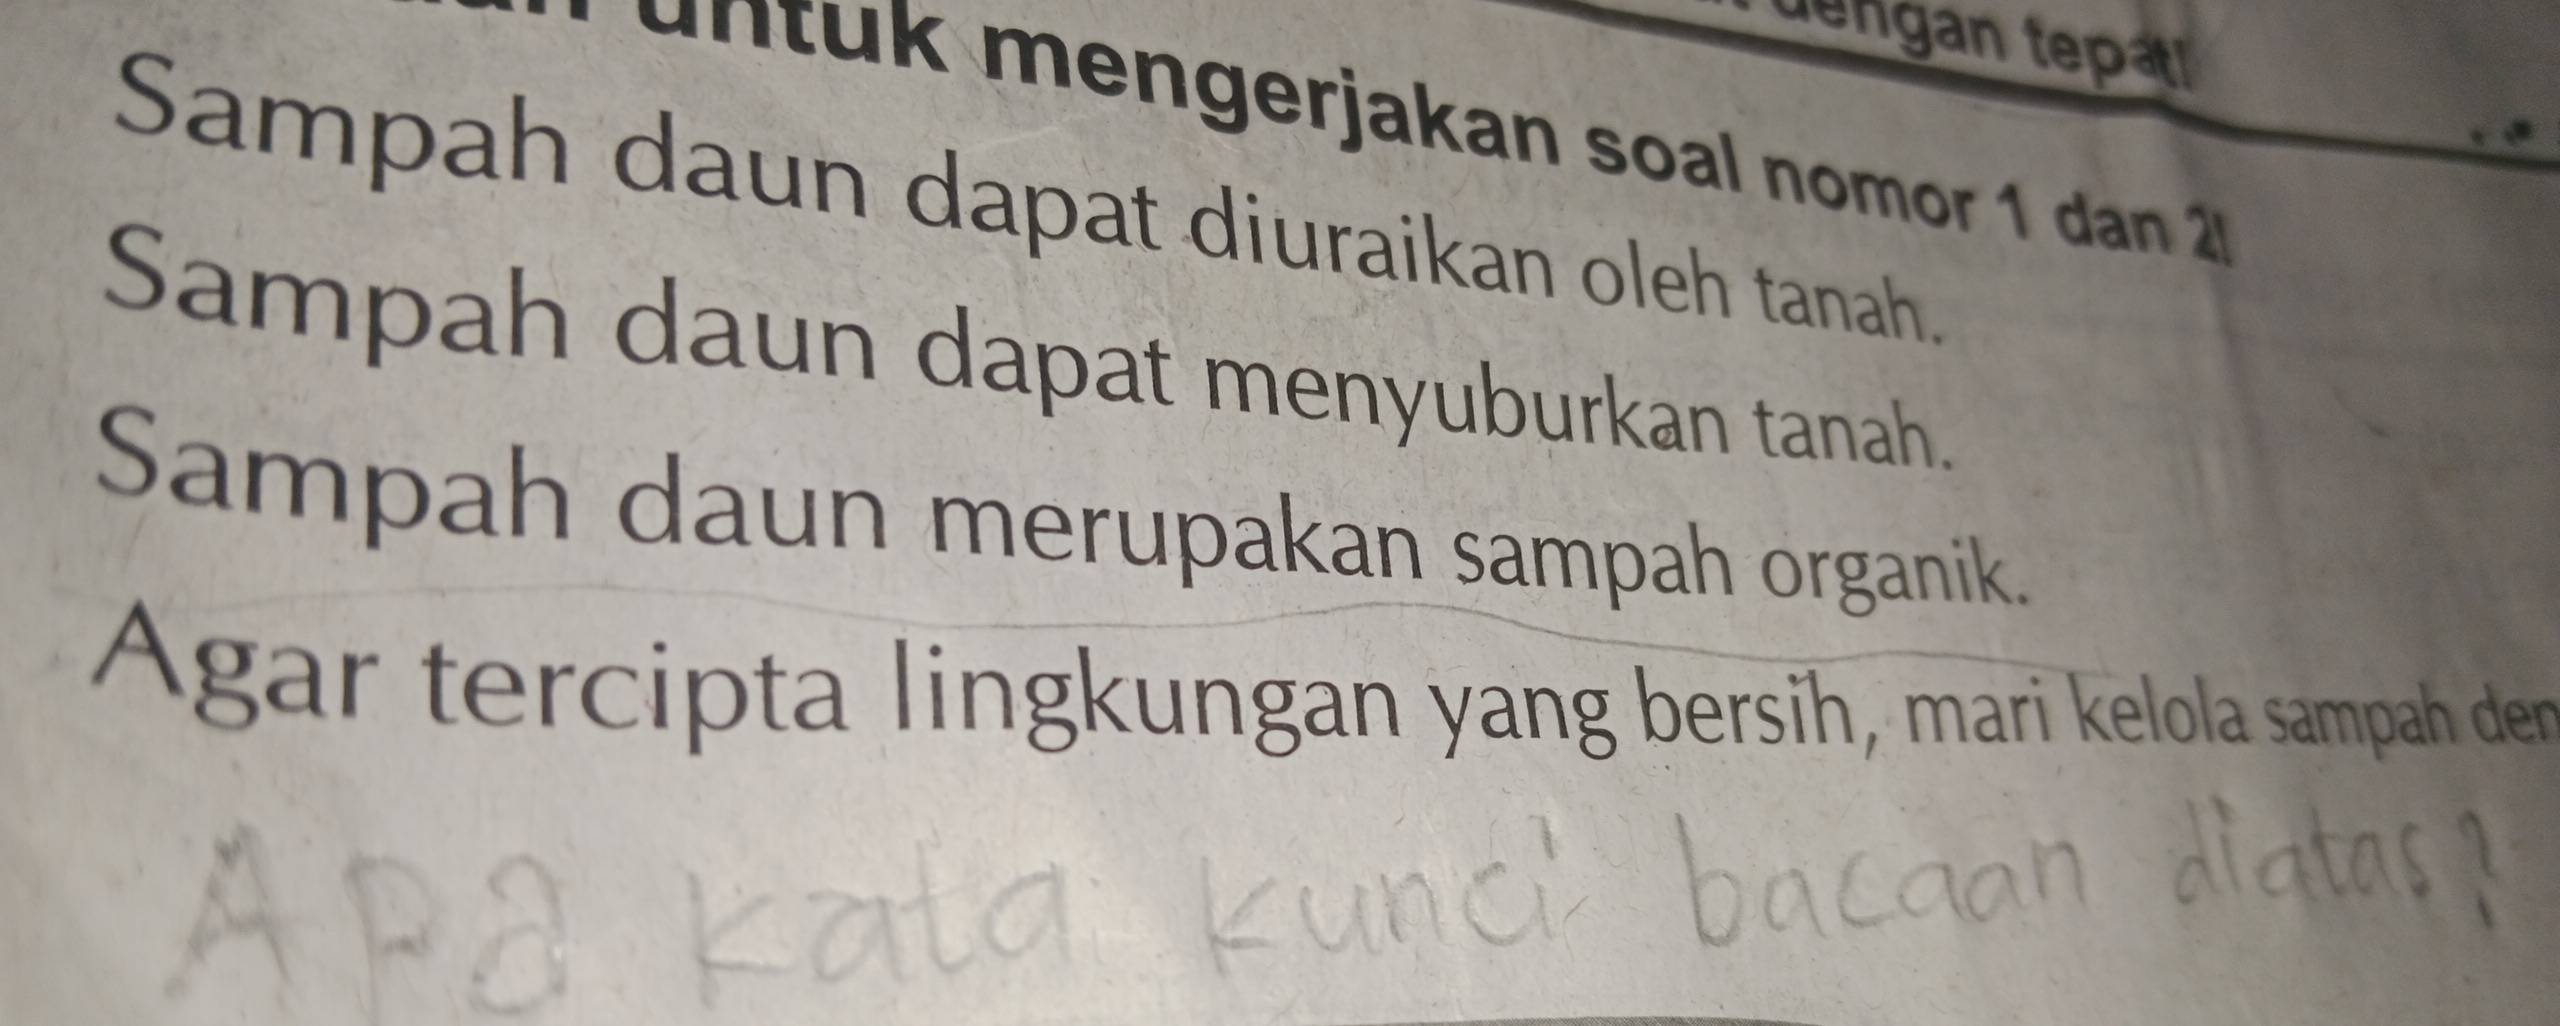 dengan tepat!
untuk mengerjakan soal nomor 1 dan 2!
Sampah daun dapat diuraikan oleh tanah.
Sampah daun dapat menyuburkan tanah.
Sampah daun merupakan sampah organik.
Agar tercipta lingkungan yang bersih, mari kelola sampah den
Apa kata kunci bacaan diatas?